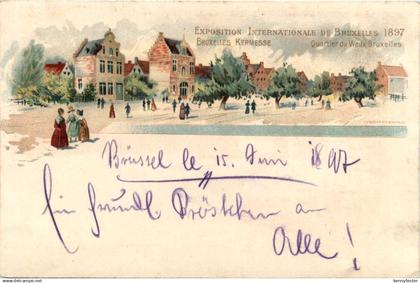 Exposition Internationale de Bruxelles 1897
Bruxelles Kermesse Quartier du Vieux Bruxelles
Brüssel le 15. Juni 1897
Ein freundl Pröstchen an
Alle!
kennyfoster